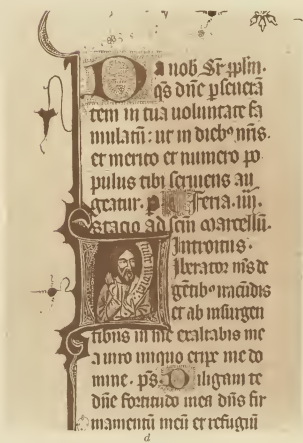 Da nob Sr ppl̄m.
q̄s dn̄e ꝑseuerā
tem in tua uoluntate fa
mulatū: ut in dieb⁹ nr̄is.
et merito et numero po
pulus tibi seruiens au
geatur. Feria. iiij.
Stacio ad scm̄ marcellū.
Introitus.
Liberator m̄s de
gētib⁹ iracūdis
et ab insurgen
tibus in me exaltabis me
a uiro iniquo eripe me do
mine. p̄s. Diligam te
dn̄e fortitudo mea dn̄s fir
mamentū meū et refugiū
d